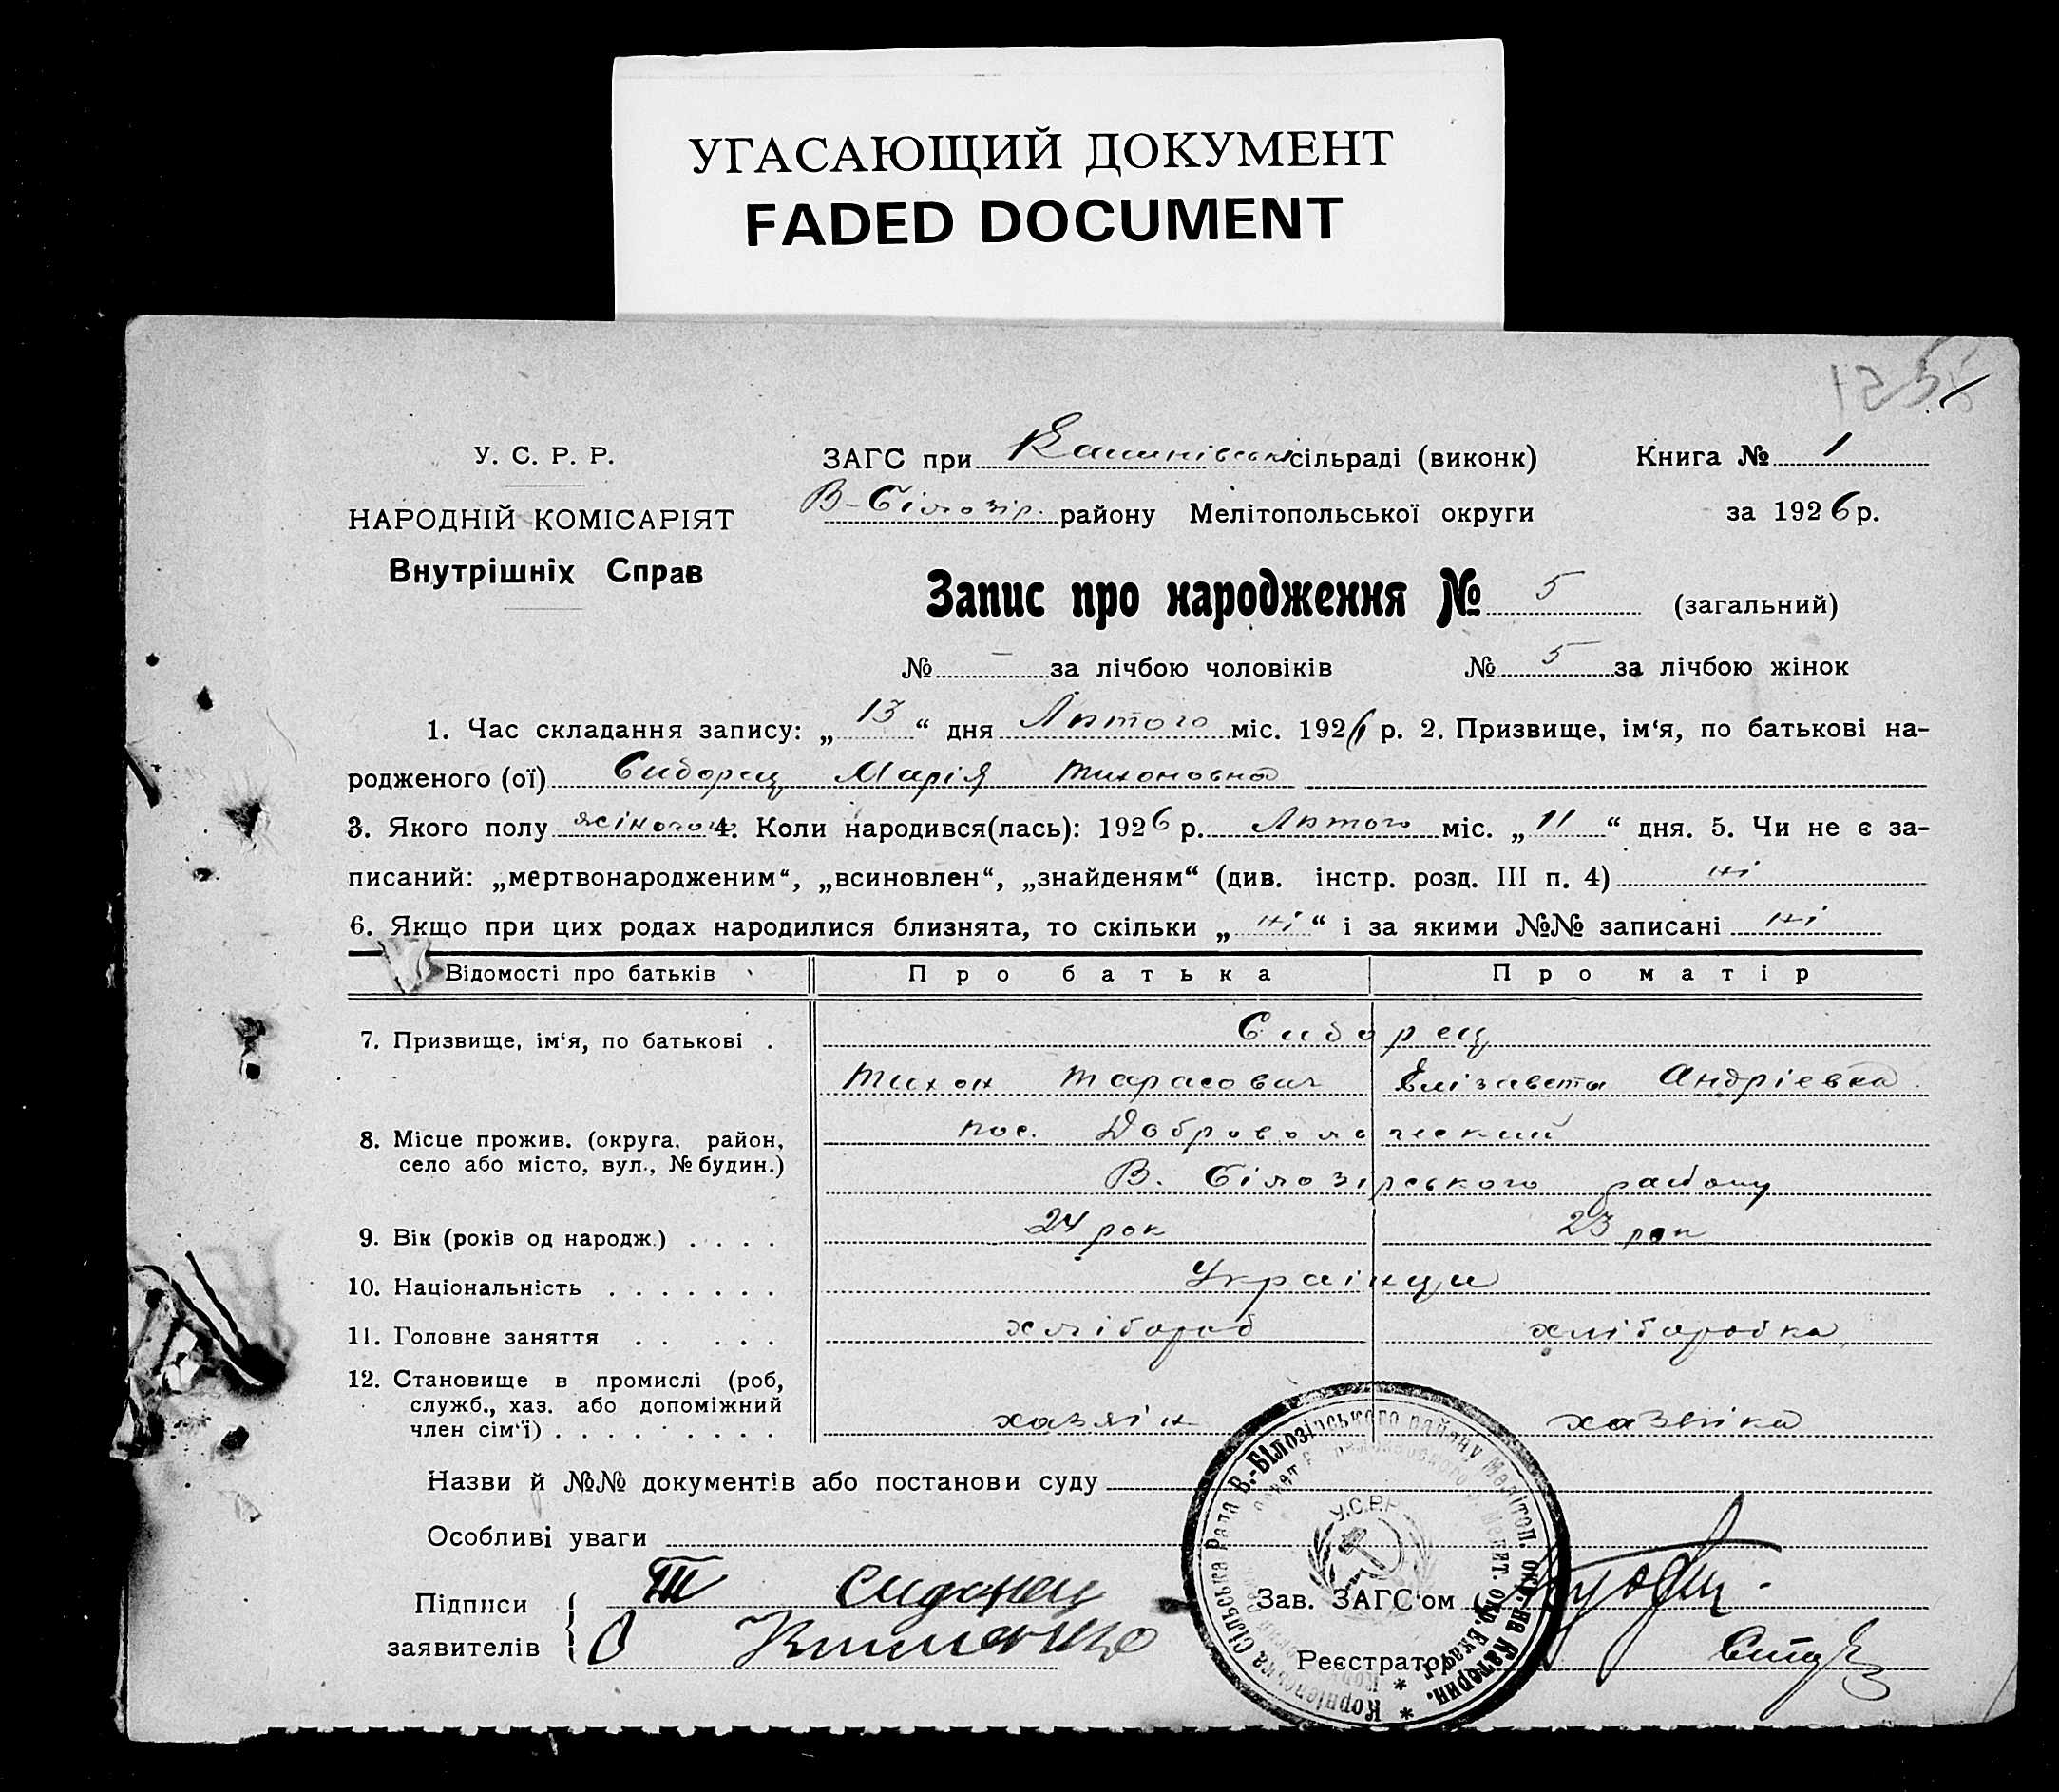 УГАСАЮЩИЙ ДОКУМЕНТ
FADED DOCUMENT
У. С. Р. Р.
НАРОДНІЙ КОМІСАРІЯТ
Внутрішніх Справ
ЗАГС при сільраді (виконк)
Книга № 1
В-Білозір. району Мелітопольської округи
за 1926 р.
Запис про народження № 5 (загальний)
№ – за лічбою чоловіків № 5 за лічбою жінок
1. Час складання запису: „13“ дня Лютого міс. 1926 р. 2. Призвище, ім‘я, по батькові на-
родженого (ої) Сидорец Марія Тихоновна
3. Якого полу жіночого 4. Коли народився(лась): 1926 р. Лютого міс. „11“ дня. 5. Чи не є за-
писаний: „мертвонародженим“, „всиновлен“, „знайденям“ (див. інстр. розд. III п. 4) ні
6. Якщо при цих родах народилися близнята, то скільки „ні“ і за якими №№ записані ні
Відомості про батьків Про батька Про матір
7. Призвище, ім‘я, по батькові . Сидорец
Тихон Тарасович Елізавета Андріевна
8. Місце прожив. (округа, район, село або місто, вул., № будин.) пос. Добровольческий
В. Білозірського району
9. Вік (років од народж.) . . . . 24 рок 23 рок
10. Національність . . . . . . . Українци
11. Головне заняття . . . . . хлібороб хлібаробка
12. Становище в промислі (роб,
служб., хаз. або допоміжний
член сім‘ї) . . . . . . . . . . хазяін хазяіка
Назви й №№ документів або постанови суду
Особливі уваги
Підписи
заявителів
Т Сидорец
Зав. ЗАГС‘ом
Реєстратор
Корніевська Сільська Рада В.-Білозірського району Мелітоп. окр. на Катерин.
У.С.Р.Р.